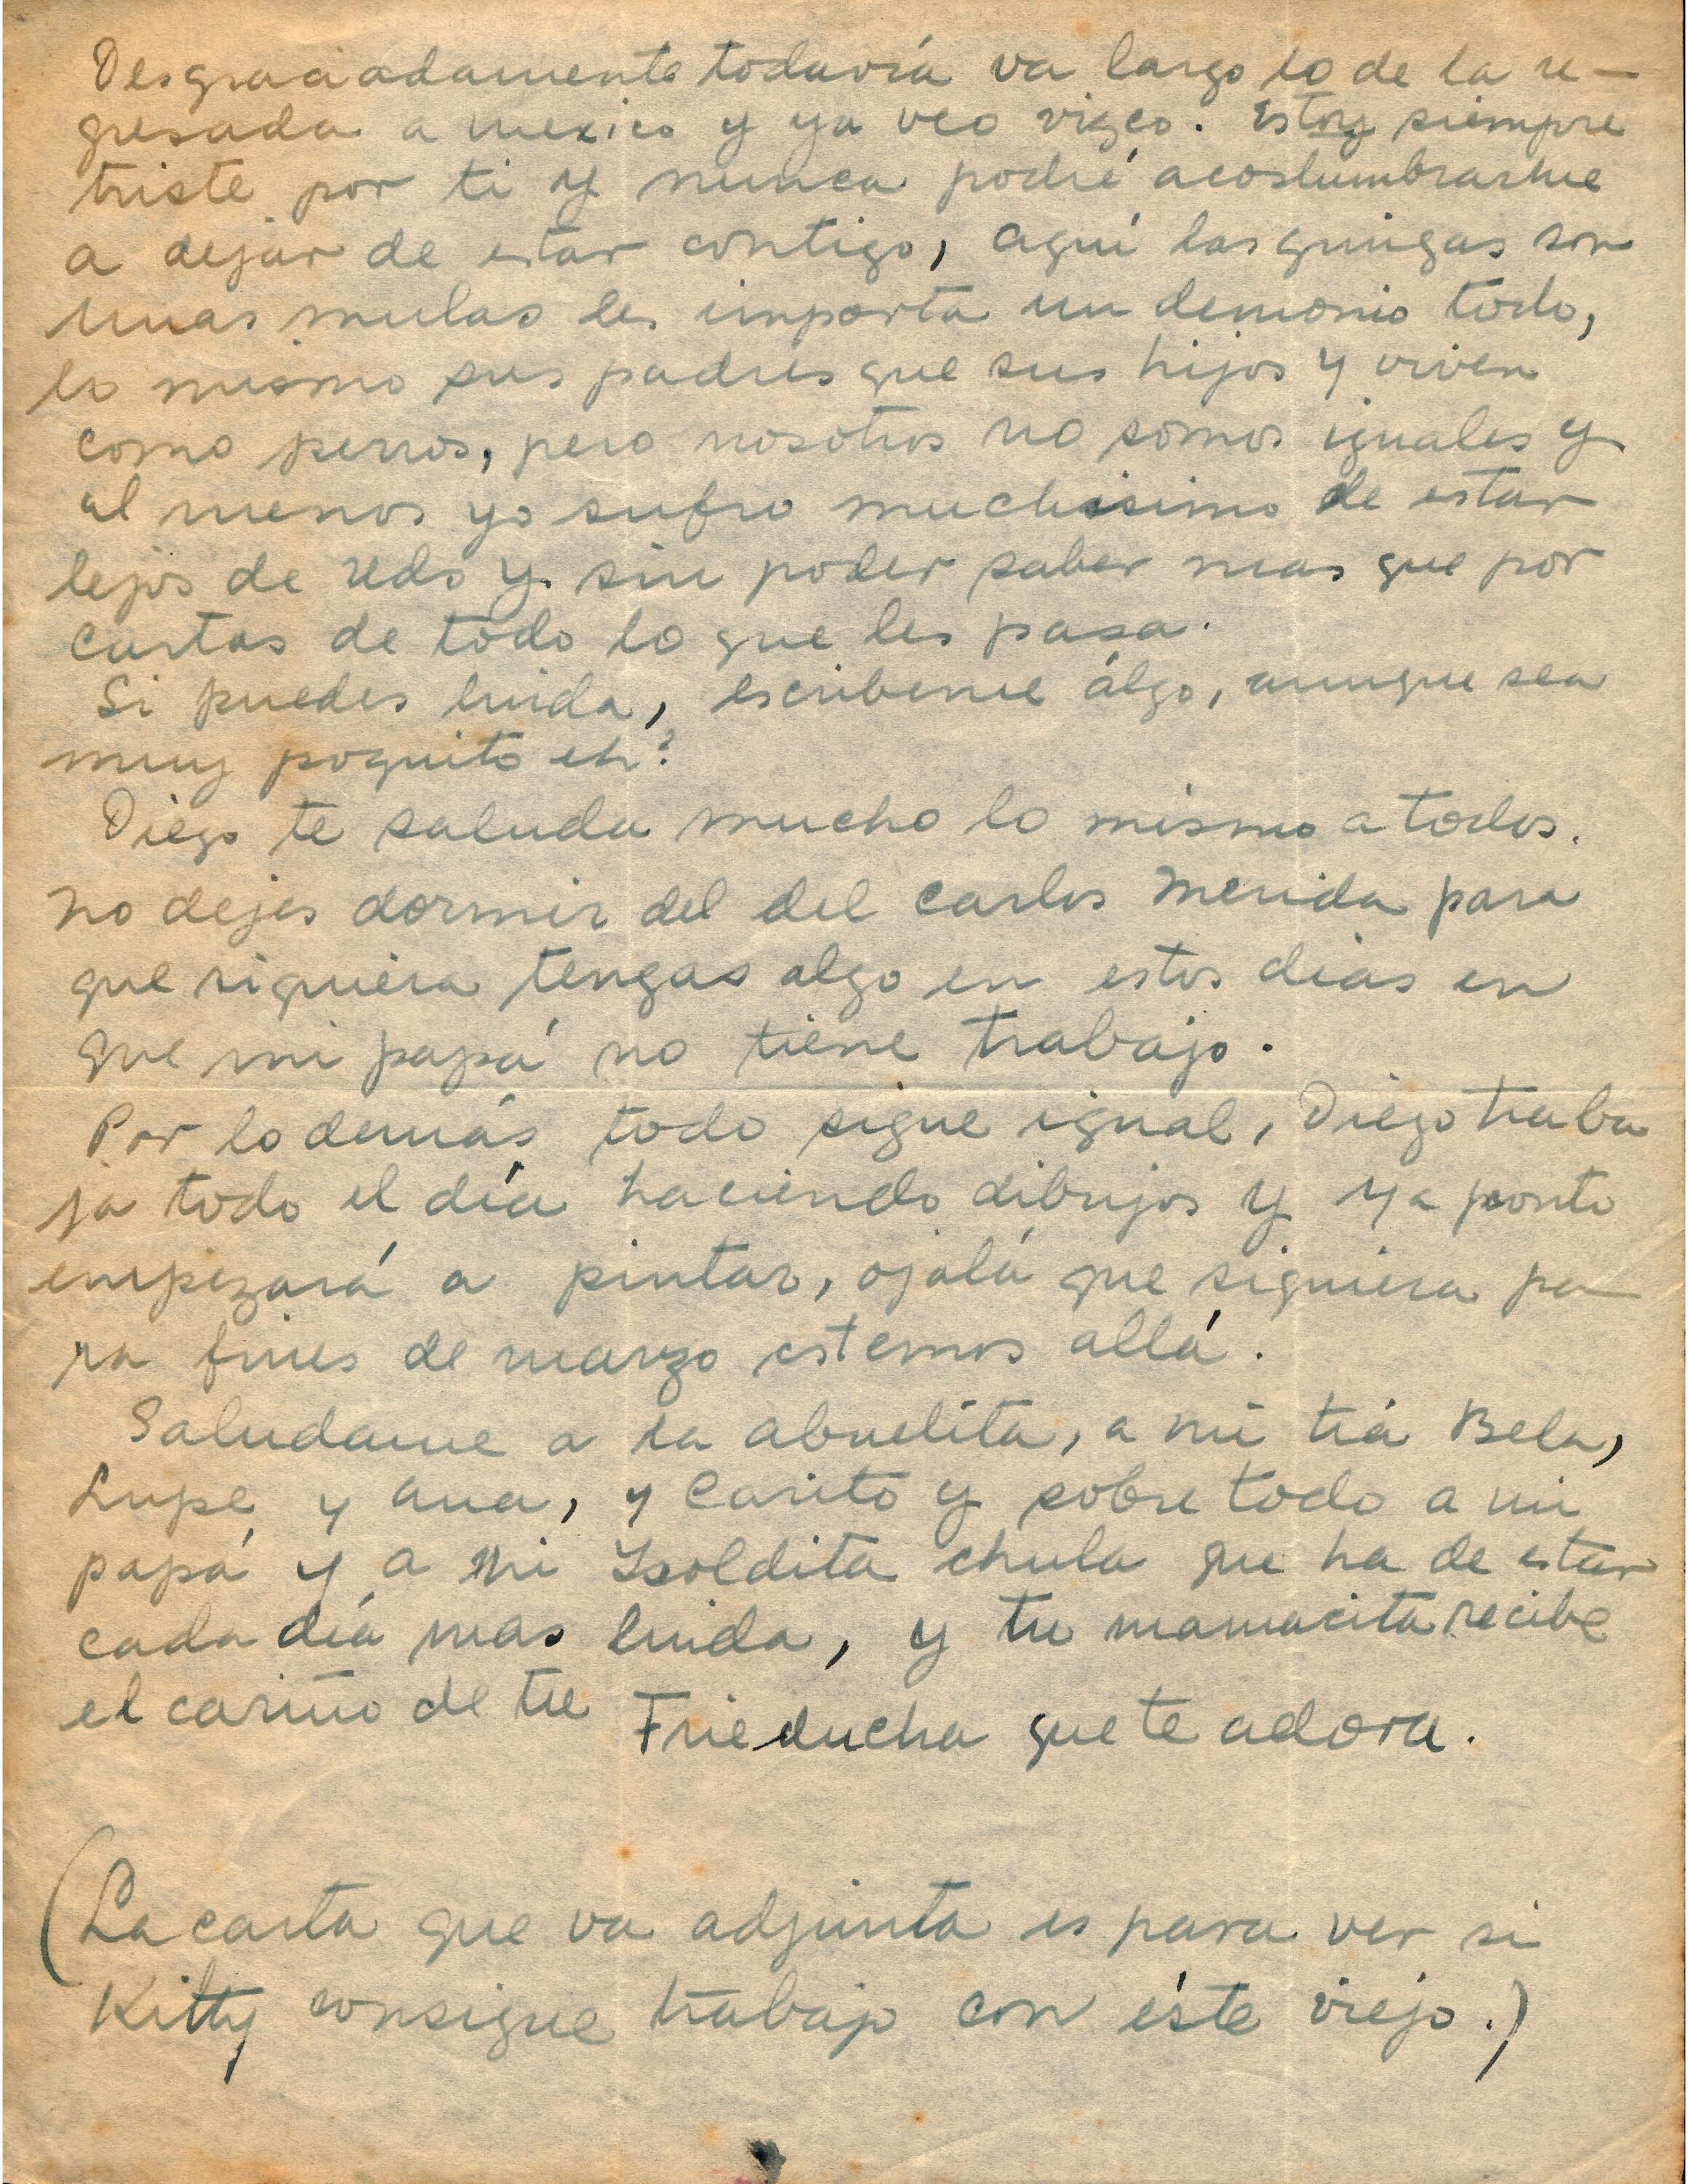 Desgraciadamente todavía va largo lo de la re-
gresada a mexico y ya veo vizco. Estoy siempre
triste por ti y nunca podré acostumbrarme
a dejar de estar contigo, aquí las gringas son
unas mulas les importa un demonio todo,
lo mismo sus padres que sus hijos y viven
como perros, pero nosotros no somos iguales y
al menos yo sufro muchisimo de estar
lejos de uds y sin poder saber mas que por
cartas de todo lo que les pasa.
Si puedes linda, escribeme álgo, aunque sea
muy poquito eh?
Diego te saluda mucho lo mismo a todos.
no dejes dormir del del Carlos Merida para
que siquiera tengas algo en estos dias en
que mi papá no tiene trabajo.
Por lo demás todo sigue igual, Diego traba
ja todo el día haciendo dibujos y ya pronto
empezará a pintar, ojalá que siquiera pa-
ra fines de marzo estemos allá.
Saludame a la abuelita, a mi tiá Bela,
Lupe y Ana, y Carito y sobre todo a mi
papá y a mi Isoldita chula que ha de estar
cada día mas linda, y tu mamacita recibe
el cariño de tu Frieducha que te adora.
(La carta que va adjunta es para ver si
Kitty consigue trabajo con éste viejo.)